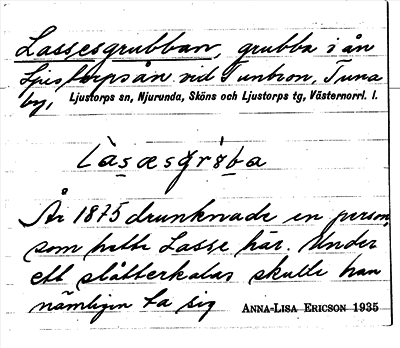 Lassesgrubban, grubba i ån
Ljustorpsån vid Tunbron, Tuna
by, Ljustorps sn, Njurunda, Sköns och Ljustorps tg, Västernorrl. l.
Làsæsgrʋ̀ba
År 1875 drunknade en person,
som hette Lasse här. Under
ett slåtterkalas skulle han
nämligen ta sig ANNA-LISA ERICSON 1935